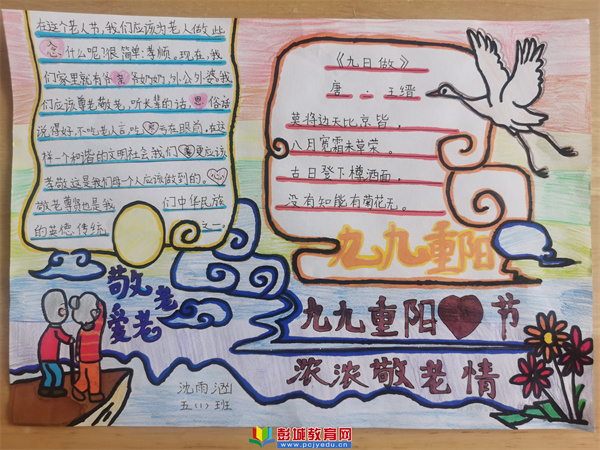 在这个老人节,我们应该为老人做些
什么呢?很简单:孝顺。现在,我
们家里就有爷爷奶奶,外公外婆。我
们应该尊老敬老,听长辈的话。俗话
说得好,不吃老人言,吃亏在眼前,在这
样一个和谐的文明社会,我们更应该
孝敬这是我们每个人应该做到的。
敬老尊贤也是我们中华民族
的英德传统之一。
《九日做》
唐.王缙
莫将边天比京皆,
八月宽霜未草荣。
古日登下樽洒面,
没有知能有菊花无。
九九重阳
敬老
爱老
九九重阳节
浓浓敬老情
沈雨涵
五(1)班
彭城教育网
www.pcjyedu.cn